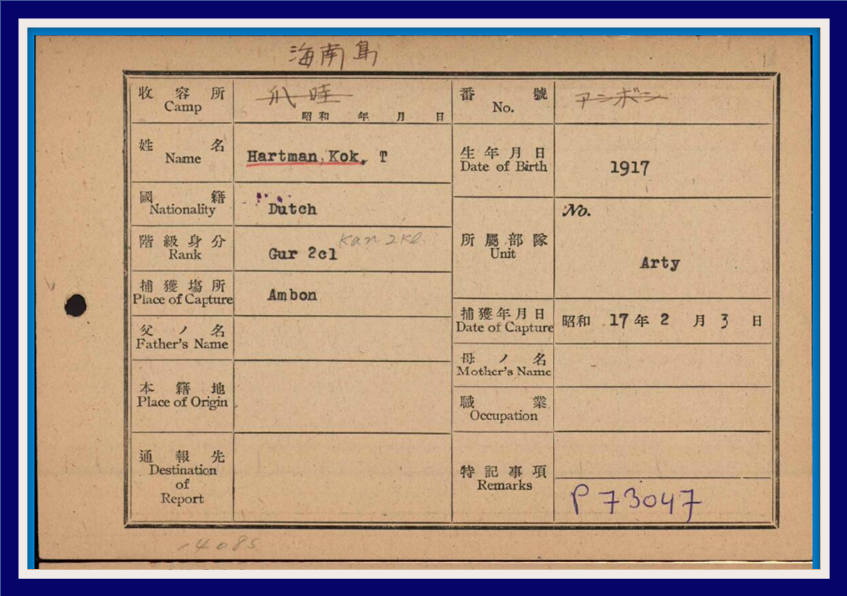 海南島
收容所 爪哇 番號 アンボン
Camp 昭和 年 月 日 No.
姓名 Hartman Kok, T 生年月日 1917
Name Date of Birth
國籍 Dutch No.
Nationality
階級身分 Kan 2kl. 所屬部隊
Rank Gur 2cl Unit Arty
捕獲場所 Ambon 捕獲年月日 昭和 17年 2 月 3 日
Place of Capture Date of Capture
父ノ名 母ノ名
Father's Name Mother's Name
本籍地 職業
Place of Origin Occupation
通報先 特記事項
Destination Remarks
of
Report P 73047
14085